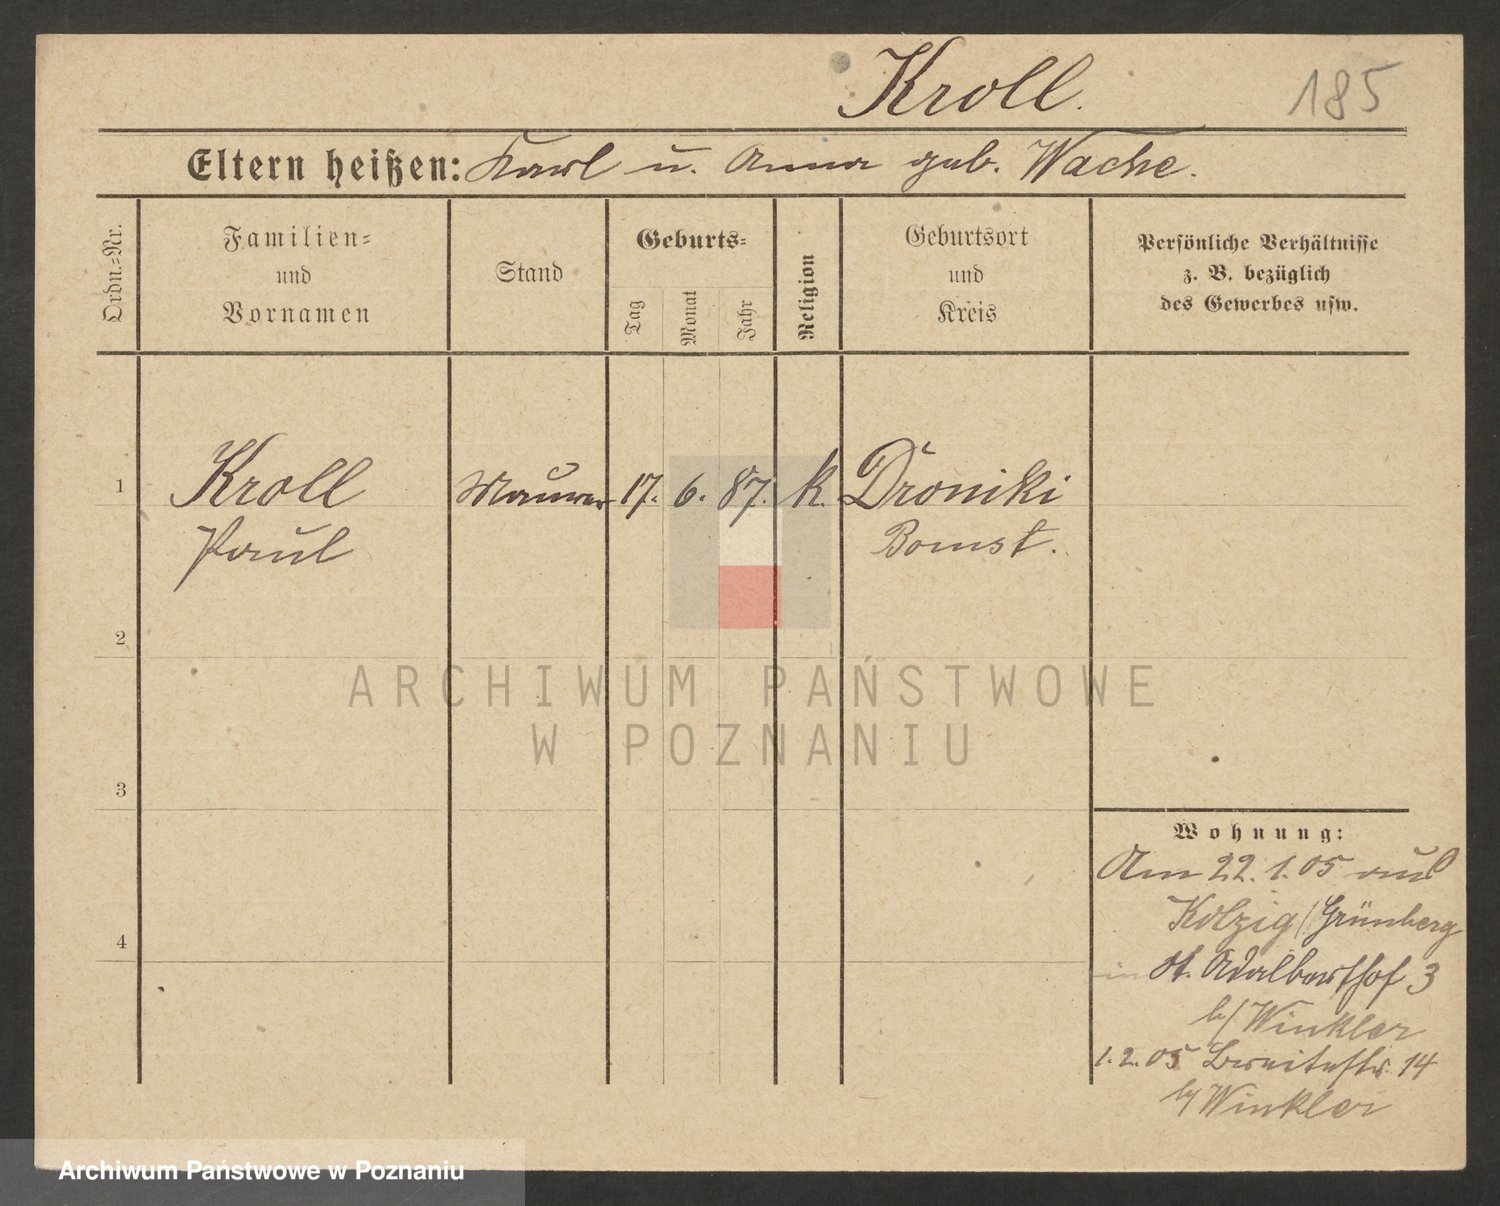 Kroll.
185
Eltern heißen: Karl u. Anna geb. Wache.
Ordn.-Nr.
Familien-
und
Vornamen
Stand
Geburts-
Tag
Monat
Jahr
Religion
Geburtsort
und
Kreis
Persönliche Verhältnisse
z. B. bezüglich
des Gewerbes usw.
1
Kroll
Paul
Maurer
17.
6.
87.
k.
Droniki
Bomst.
2
3
4
Wohnung:
Am 22.1.05 aus
Kolzig/Grünberg
in St. Adalberthof 3
b/ Winkler
1.2.05 Breitestr. 14
b/ Winkler
ARCHIWUM PAŃSTWOWE
W POZNANIU
Archiwum Państwowe w Poznaniu